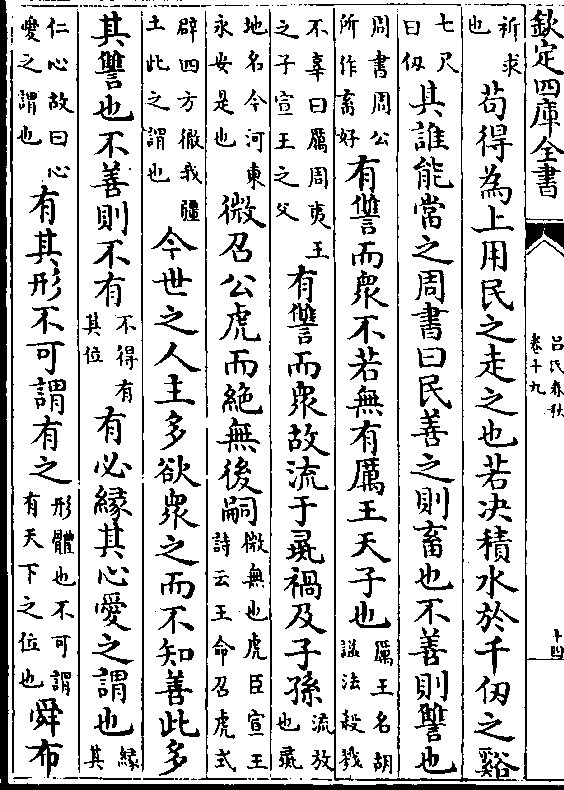 欽定四庫全書 呂氏春秋 卷十九 十四
祈求也 茍得為上用民之走之也若决積水於千仞之谿
七尺曰仞 其誰能當之周書曰民善之則畜也不善則讐也
周書周公所作畜好 有讐而衆不若無有厲王天子也 厲王名胡謚法殺戮
不辜曰厲周夷王之子宣王之父 有讐而衆故流于彘禍及子孫 流放也彘
地名今河東永安是也 微召公虎而絶無後嗣 微無也虎臣宣王詩云王命召虎式
辟四方徹我疆土此之謂也 今世之人主多欲衆之而不知善此多
其讐也不善則不有 不得有其位 有必縁其心愛之謂也 縁其
仁心故曰心愛之謂也 有其形不可謂有之 形體也不可謂有天下之位也 舜布